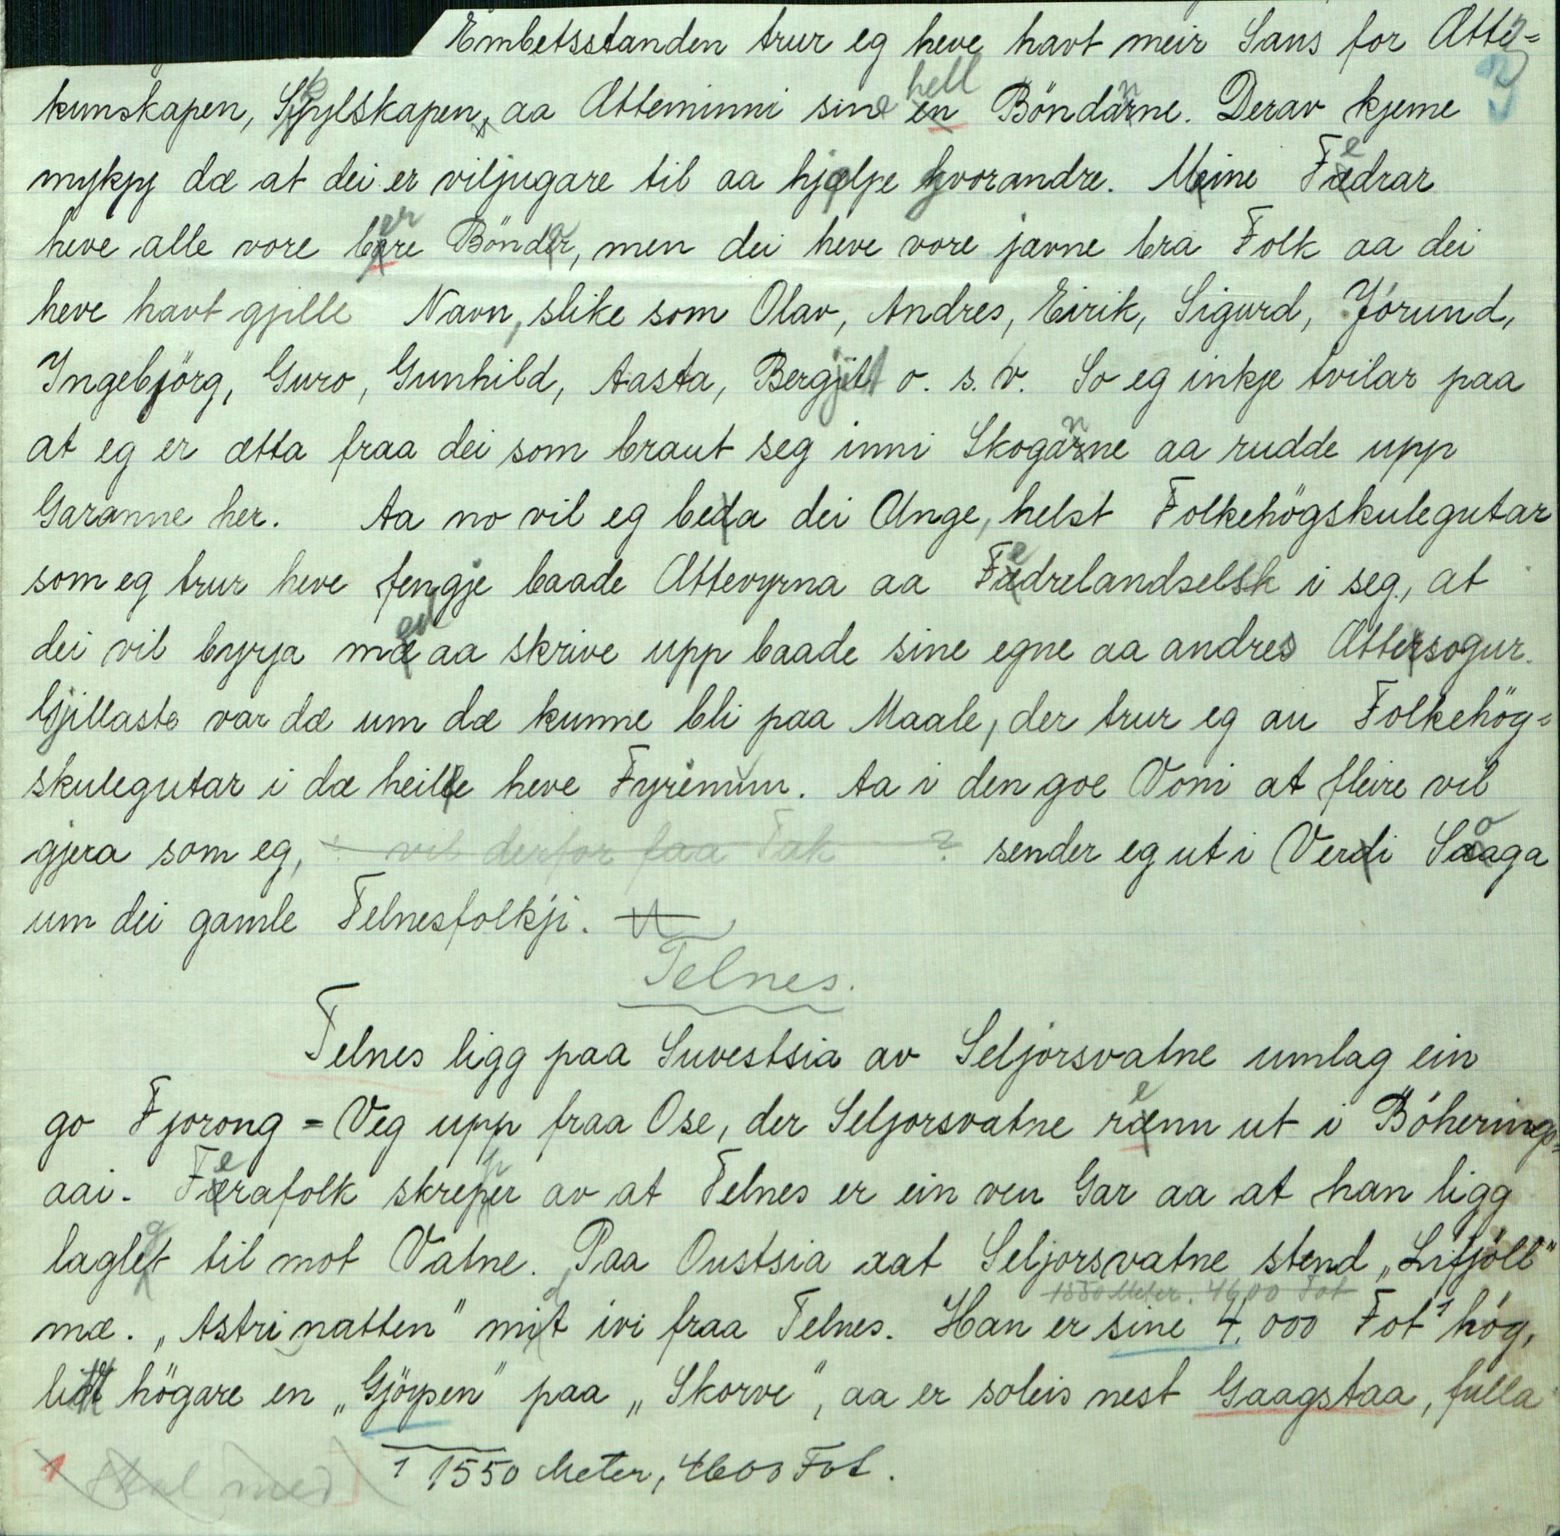 Embetsstanden trur eg heve havt meir Sans for Ætte=
kunskapen, Skylskapen, aa Ætteminni sine hell Böndanne. Derav kjeme
mykjy dæ at dei er viljugare til aa hjelpe kvorandre. Mine Fedrar
heve alle vore berre Bönder, men dei heve vore javne bra Folk aa dei
heve havt gjille Navn, slike som Olav, Andres, Eirik, Sigurd, Jórund,
Ingebjörg, Guro, Gunhild, Aasta, Bergjitt o. s. v. So eg inkje tvilar paa
at eg er ætta fraa dei som braut seg inni Skoganne aa rudde upp
Garanne her. Aa no vil eg bea dei Unge, helst Folkehögskulegutar
som eg trur heve fengje baade Ættevyrna aa Fedrelandselsk i seg, at
dei vil byrja med aa skrive upp baade sine egne aa andres Ættesogur.
Gjillaste var dæ um dæ kunne bli paa Maale, der trur eg au Folkehög=
skulegutar i dæ heile heve Fyremun. Aa i den goe Voni at fleire vil
gjera som eg, vil derfor faa Tak ? sender eg ut i Veri Soga
um dei gamle Telnesfolkji.
Telnes.
Telnes ligg paa Suvestsia av Seljorsvatne umlag ein
go Fjorong = Veg upp fraa Ose, der Seljorsvatne renn ut i Bóherings=
aai. Ferafolk skreper av at Telnes er ein ven Gar aa at han ligg
laglegt til mot Vatne. Paa Oustsia aat Seljorsvatne stend „Lifjöll"
1550 Meter. 4600 Fot
mæ. „Astrinatten" midt ivi fraa Telnes. Han er sine 4.000 Fot ¹ hög,
litt högare en „Gjöysen" paa „Skorve", aa er soleis nest Gaagstaa, fulla
1 skal med
¹ 1550 Meter, 4600 Fot.